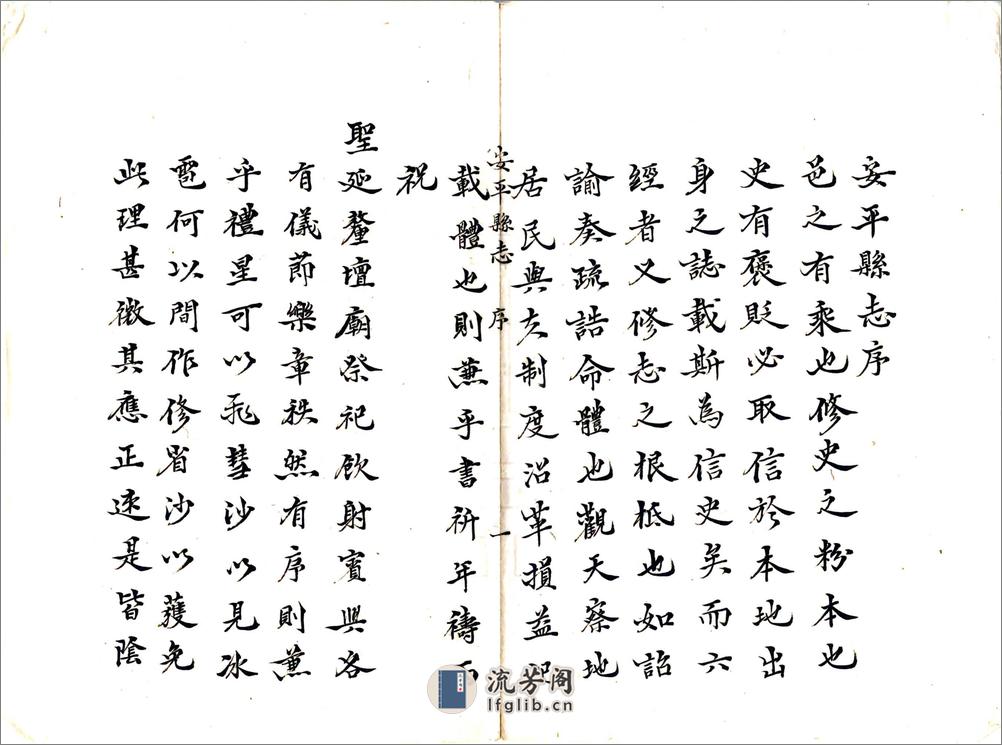 安平縣志序
邑之有乘也修史之粉本也
史有褒貶必取信於本地出
身之誌載斯為信史矣而六
經者又修志之根柢也如詔
諭奏疏誥命體也觀天察地
居民與夫制度沿革損益
安平縣志 序 一
載體也則兼乎書祈年禱
祝
聖延釐壇廟祭祀飲射賓興各
有儀節樂章秩然有序則兼
乎禮星可以彗沙以見冰
雹何以間作修省沙以蠖免
此理甚微其應正速是皆陰
流芳阁
lfglib.cn